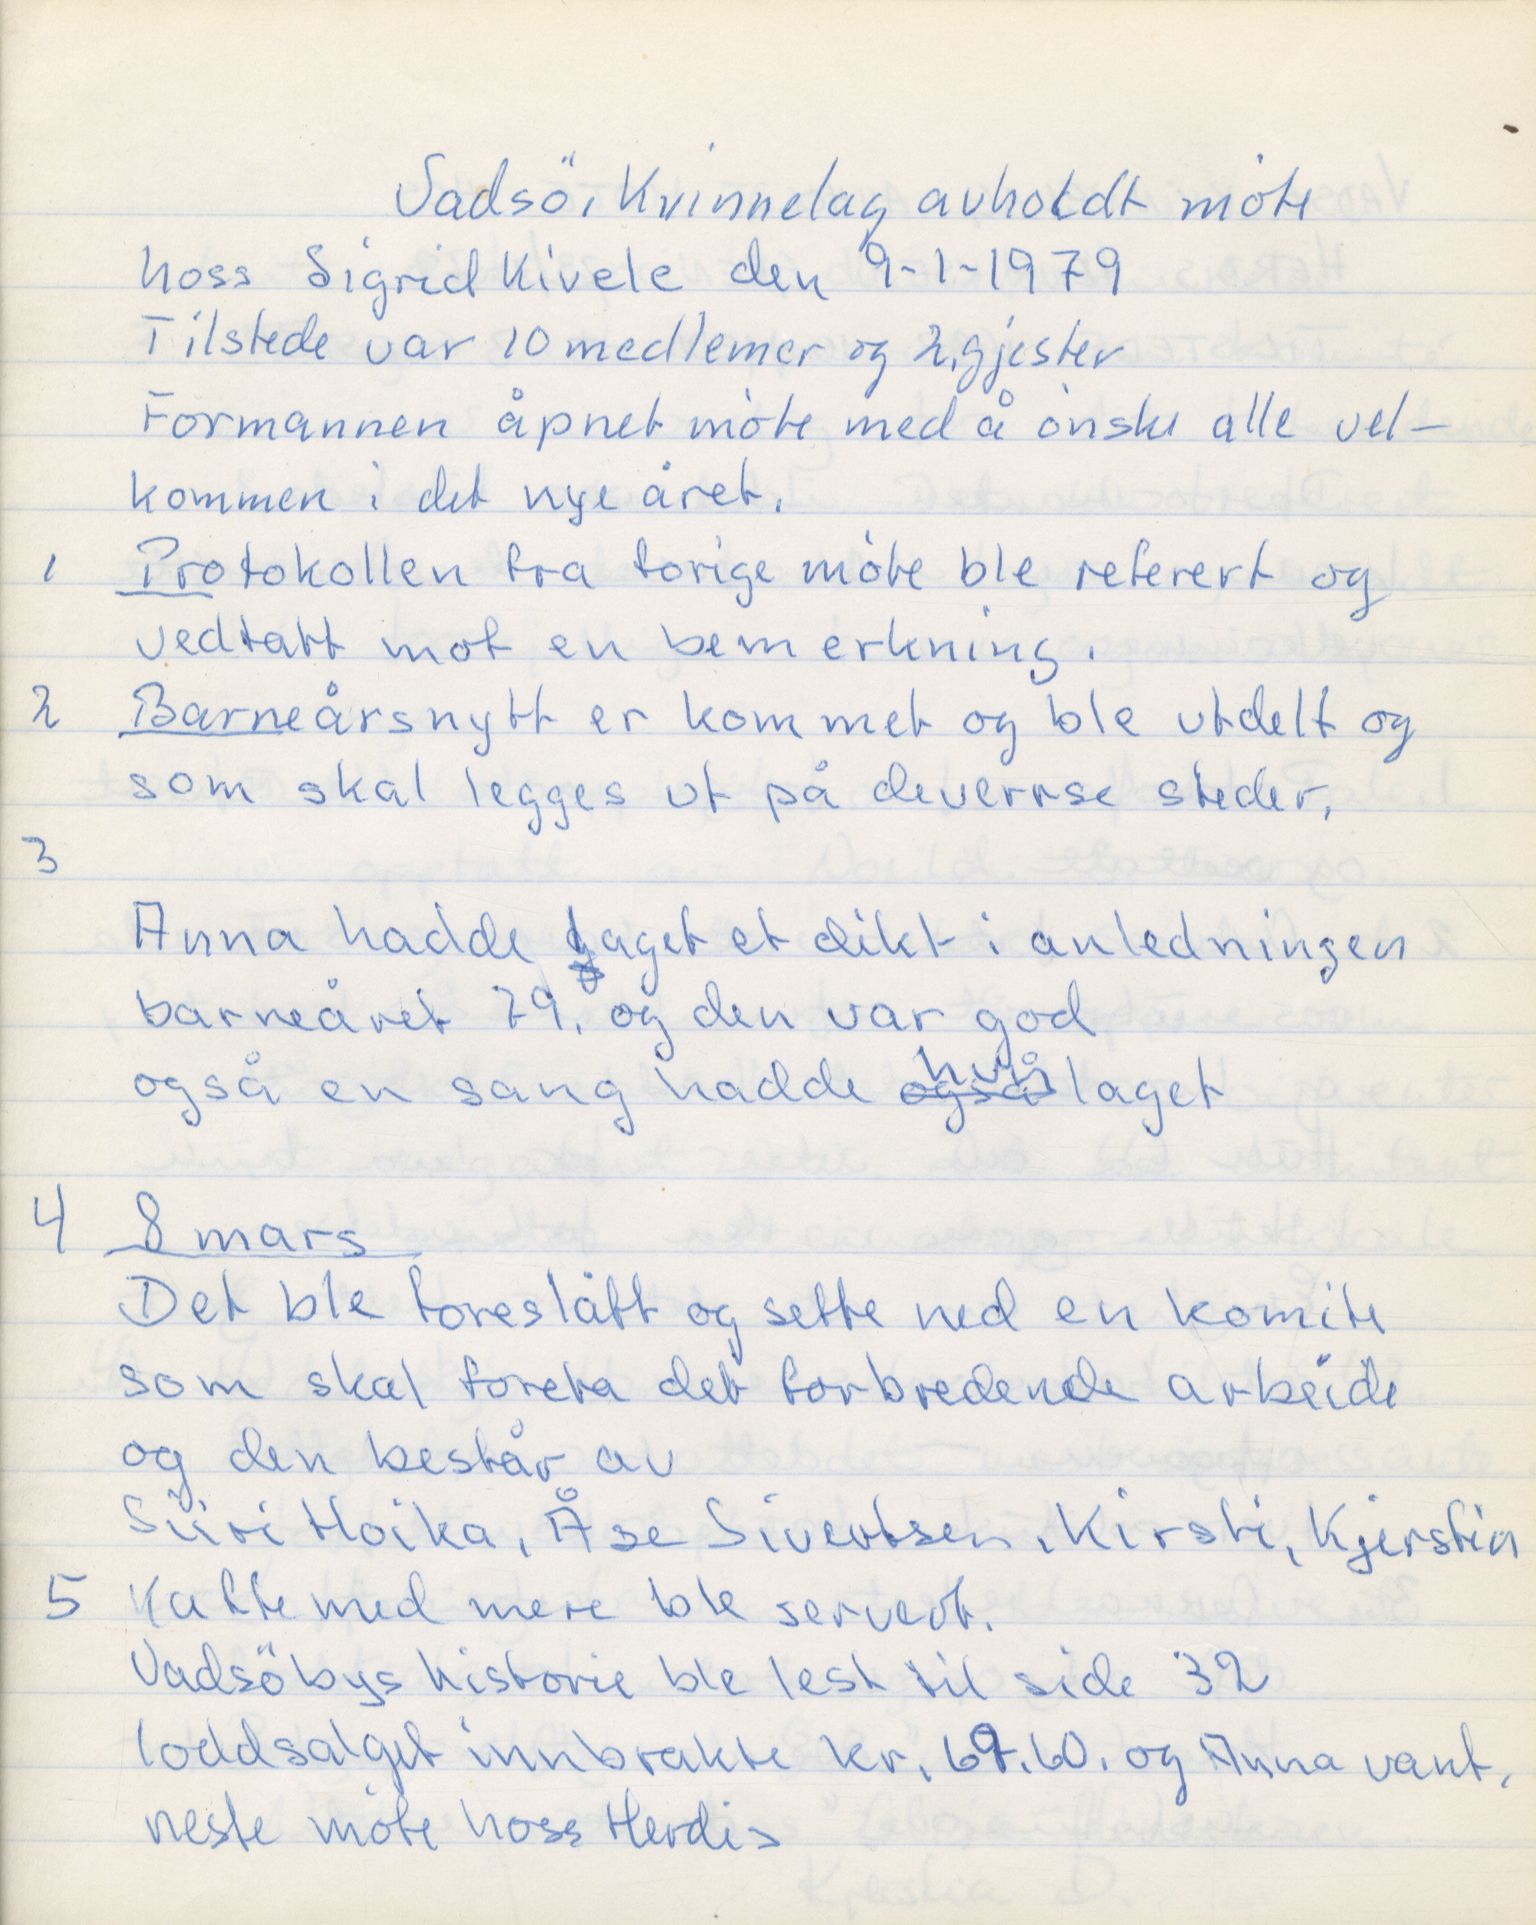 Vadsö, Kvinnelag avholdt möte
hoss Sigrid Kivele den 9-1-1979
Tilstede var 10 medlemer og 2, gjester
Formannen åpnet möte med å önske alle vel-
kommen i det nye året.
1 Protokollen fra forige möte ble referert og
vedtatt mot en bemerkning.
2 Barneårsnytt er kommet og ble utdelt og
som skal legges ut på deverrse steder,
3
Anna hadde laget et dikt i anledningen
barneåret 79. og den var god
også en sang hadde også hun laget
4 8 mars
Det ble foreslått og sette ned en komite
som skal foreta det forbredende arbeide
og den består av
Siiri Hoika, Åse Sivertsen, Kirsti, Kjerstin
5 Kaffe med mere ble servert.
Vadsöbys historie ble lest til side 32
loddsalget innbrakte kr. 69.60. og Anna vant,
neste möte hoss Herdis